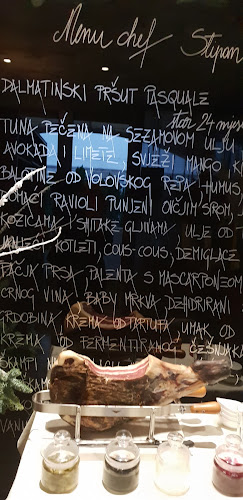 Menu chef Stipan
DALMATINSKI PRŠUT PASQUALE
star 24 mjes
TUNA PEČENA NA SEZAMOVOM ULJU
AVOKADA I LIMETE, SVJEŽI MANGO
BALOTINE OD VOLOVSKOG REPA, HUMUS
DOMAĆI RAVIOLI PUNJENI OVČJIM SIROM,
KOZICAMA I SHITAKE GLJIVAMA ULJE OD
JANJEĆI KOTLETI, COUS-COUS, DEMIGLACE
PAČJA PRSA, PALENTA S MASCARPONEOM
CRNOG VINA, BABY MRKVA, DEHIDRIRAN
GRDOBINA, KREMA OD TARTUFA, UMAK OD
KREMA OD FERMENTIRANOG ČEŠNJAKA
ŠKAMPI